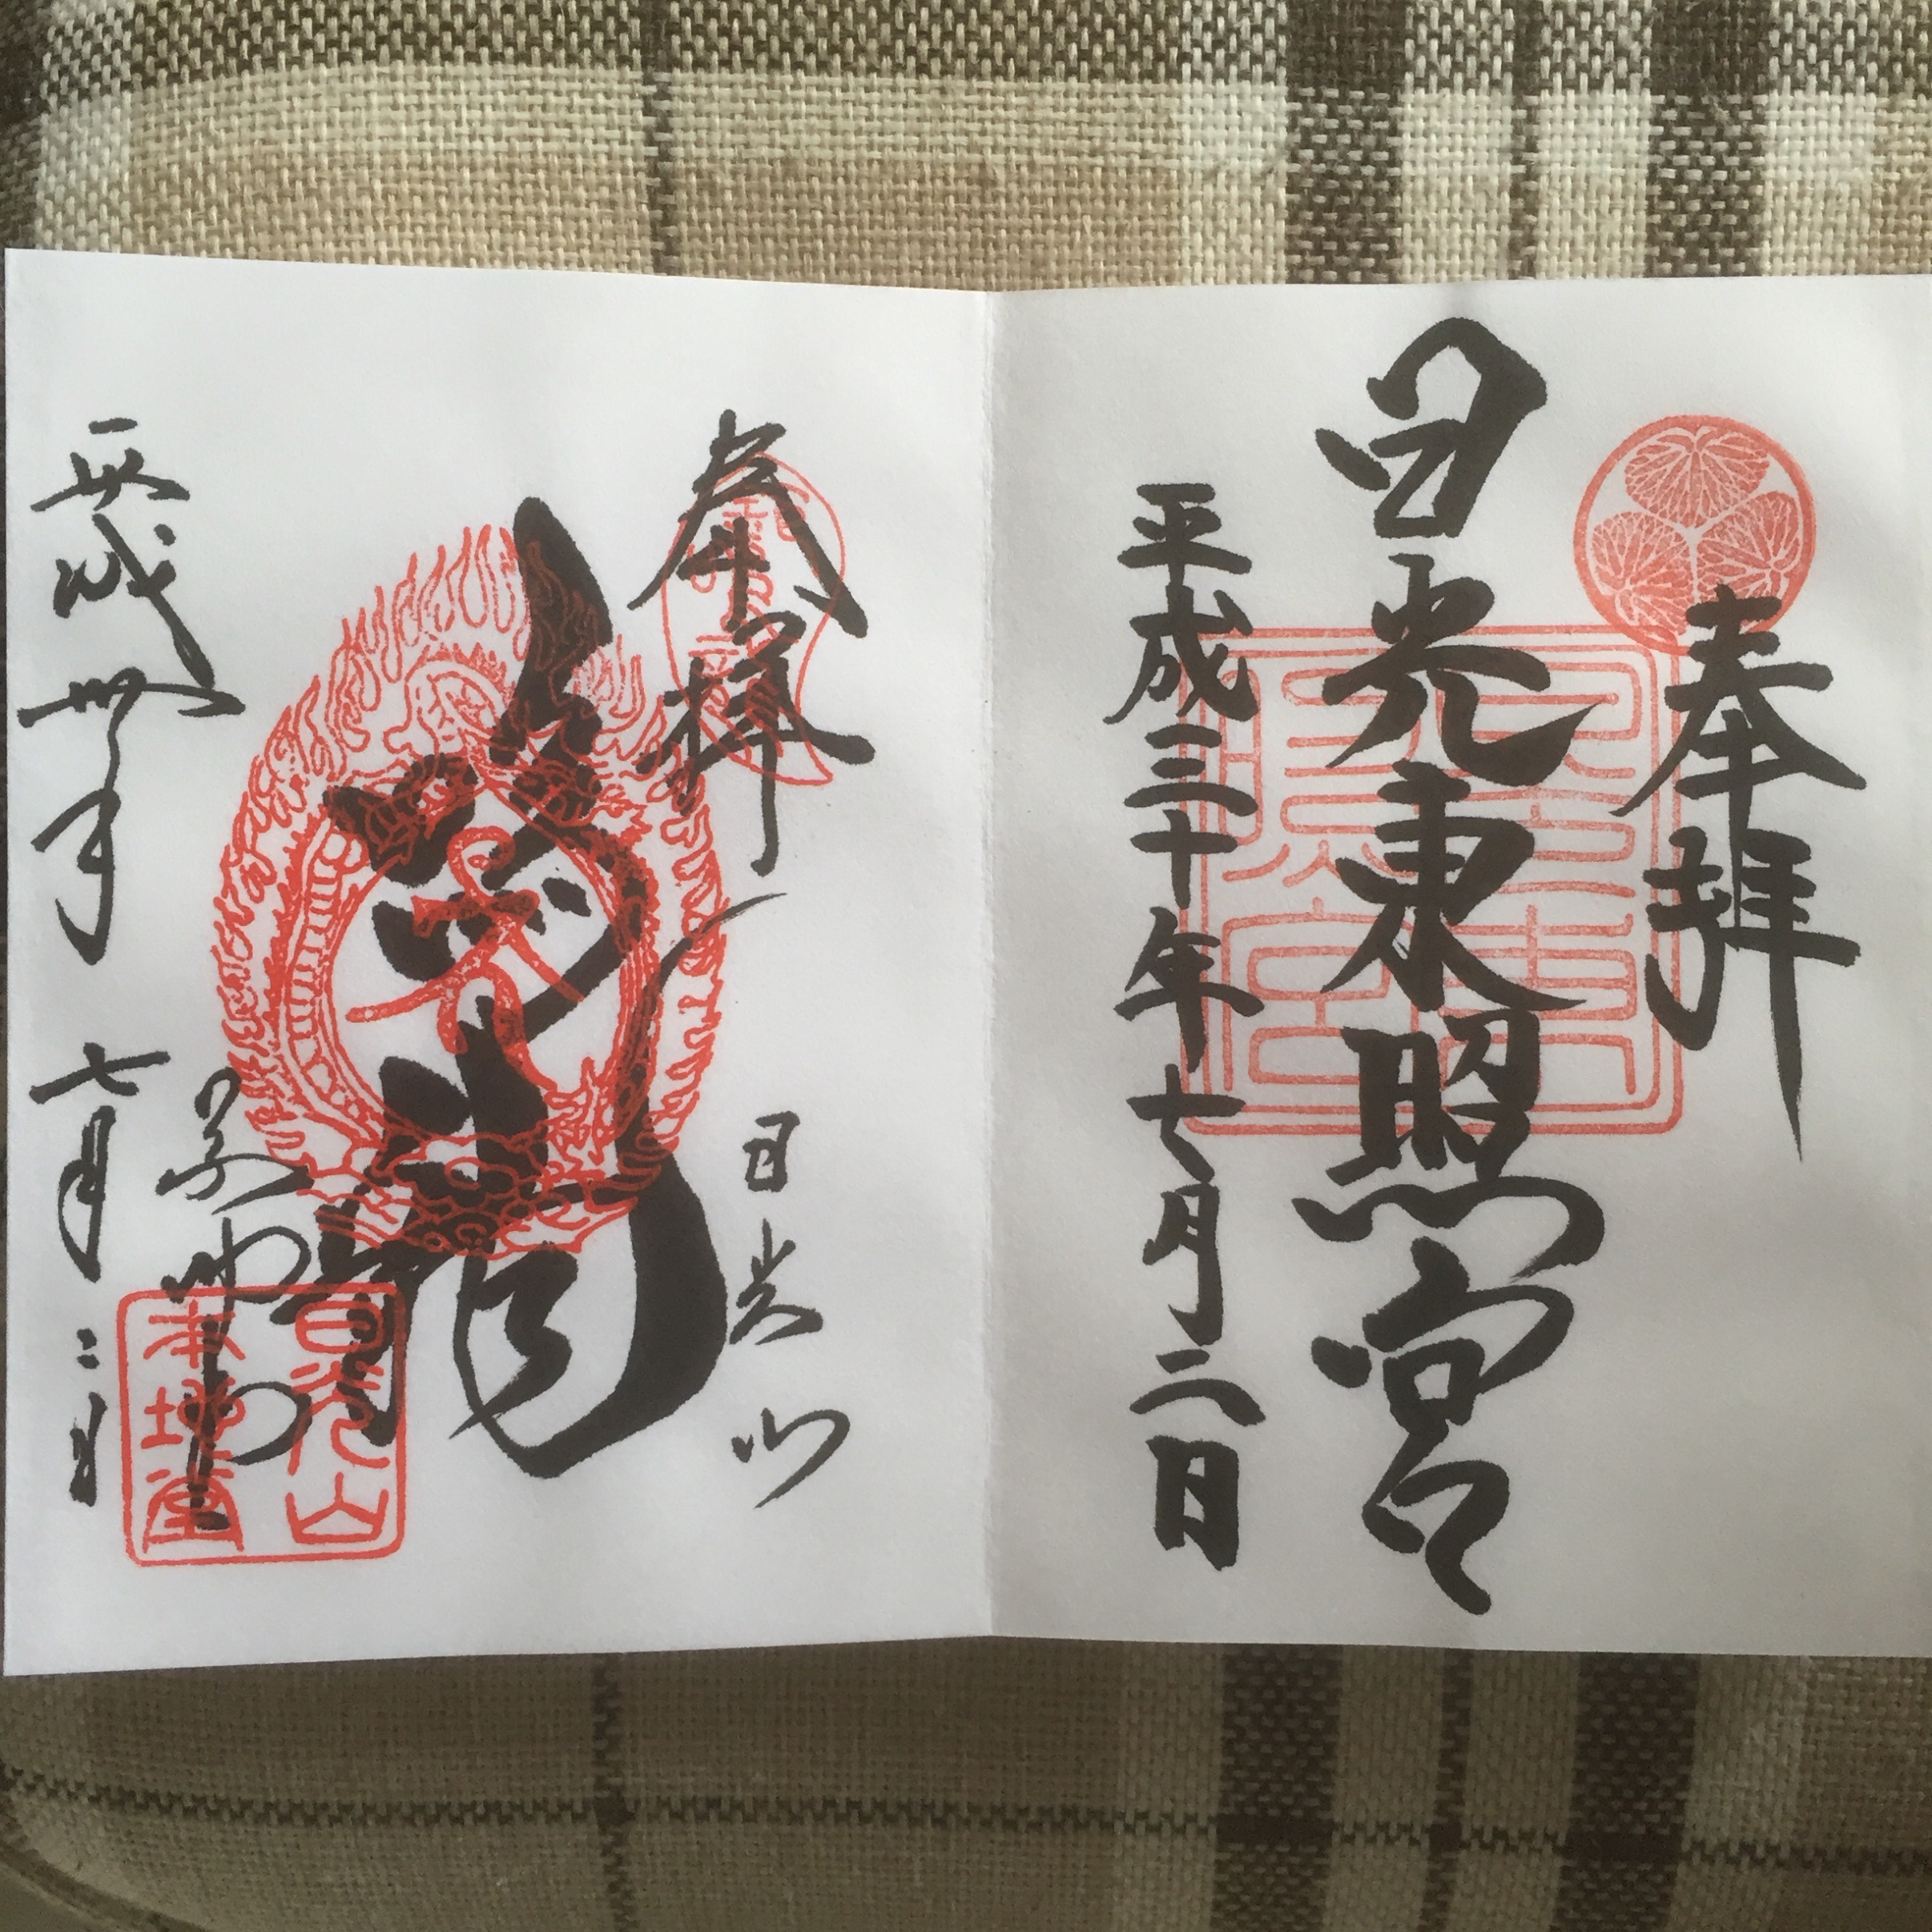 奉拝
日光東照宮
平成三十年七月二日
奉拝
日光山
鳴龍
薬師堂
平成卅年 七月二日
日光山
本地堂